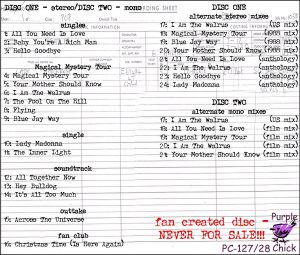 DISC ONE - stereo/DISC TWO - mono
RDING SHEET
singles
1: All You Need Is Love
2: Baby You're A Rich Man
3: Hello Goodbye
Magical Mystery Tour
4: Magical Mystery Tour
5: Your Mother Should Know
6: I Am The Walrus
7: The Fool On The Hill
8: Flying
9: Blue Jay Way
single
10: Lady Madonna
11: The Inner Light
soundtrack
12: All Together Now
13: Hey Bulldog
14: It's All Too Much
outtake
15: Across The Universe
fan club
16: Christmas Time (Is Here Again)
DISC ONE
alternate stereo mixes
17: I Am The Walrus (US mix)
18: Magical Mystery Tour (1988 mix)
19: Blue Jay Way (1988 mix)
20: Your Mother Should Know (1988 mix)
21: All You Need Is Love (anthology)
22: I Am The Walrus (anthology)
23: Hello Goodbye (anthology)
24: Lady Madonna (anthology)
DISC TWO
alternate mono mixes
17: I Am The Walrus (US mix)
18: All You Need Is Love (film mix)
19: Magical Mystery Tour (film mix)
20: I Am The Walrus (film mix)
21: Your Mother Should Know (film mix)
fan created disc -
NEVER FOR SALE!!!
Purple
Chick
PC-127/28